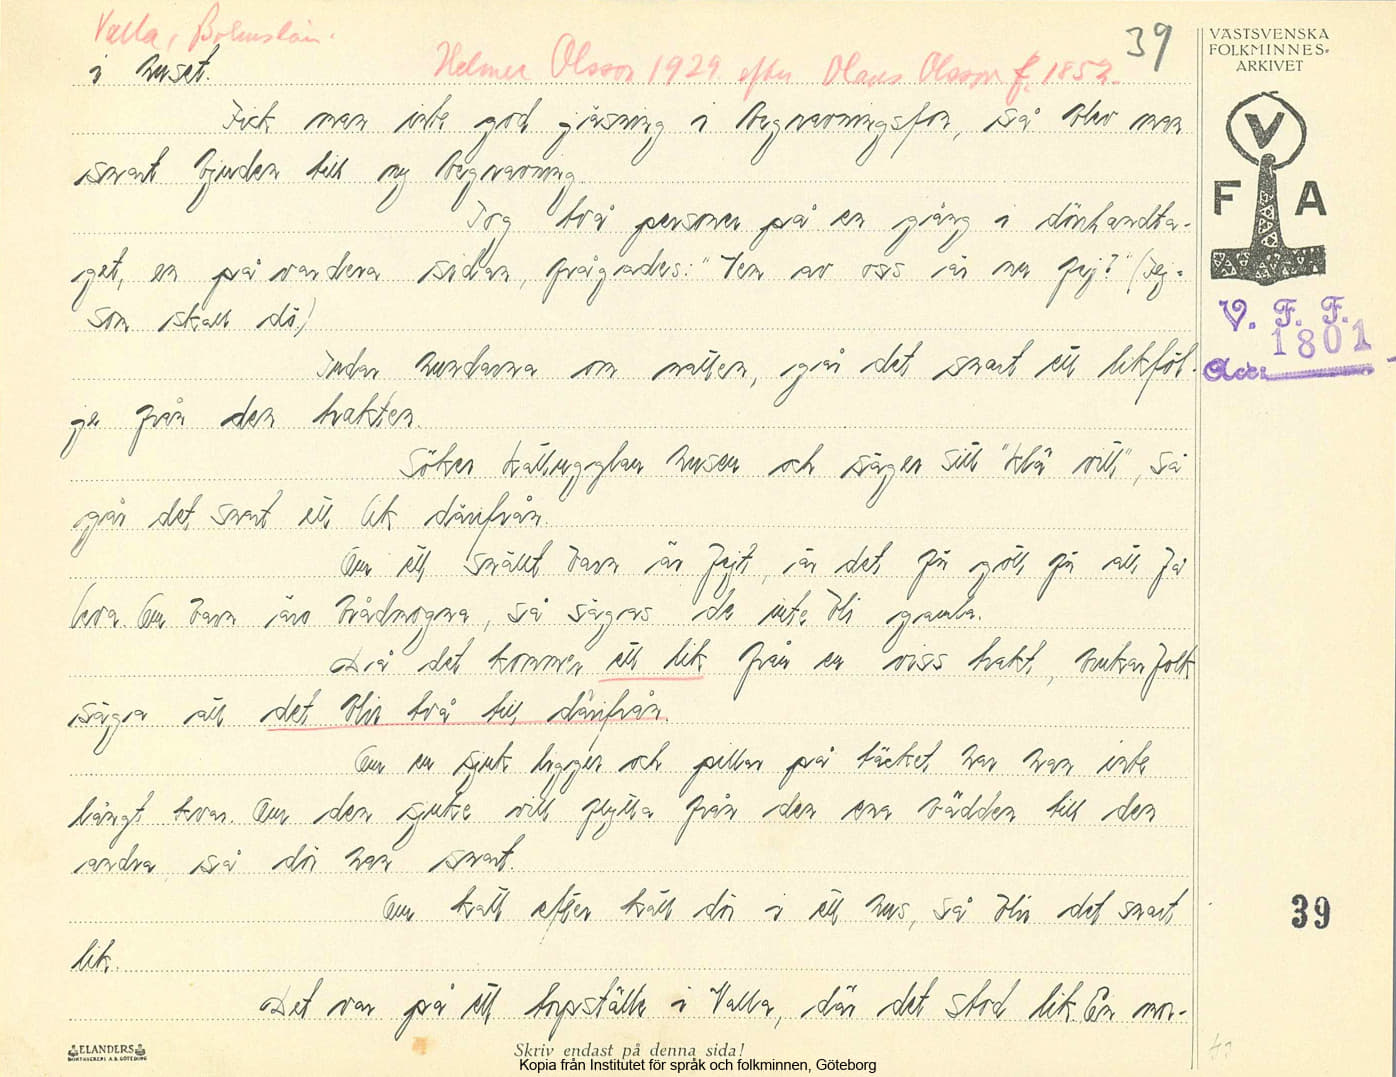 Valla, Bohuslän.
39
Helmer Olsson 1929 efter Olaus Olsson f. 1853.
i huset.
Fick man inte god jäsning i begravningsfon, så blev man
snart bjuden till ny begravning.
Tog två personer på en gång i dörrhandta-
get, en på vardera sidan, frågades: "Vem av oss är nu fej?" (fej=
som skall dö.)
Tuder hundarna om natten, går det snart ett likföl-
je från den trakten.
Söker kattugglan husen och säger sitt "klä vitt", så
går det snart ett lik därifrån.
Om ett snällt barn är fejt, är det för gott för att få
leva. Om barn äro brådmogna, så sägas de inte bli gamla.
Då det kommer ett lik från en viss trakt, brukar folk
säga att det blir två till därifrån.
Om en sjuk ligger och pillar på täcket har han inte
långt kvar. Om den sjuke vill flytta från den ena bädden till den
andra, så dör han snart.
Om katt efter katt dör i ett hus, så blir det snart
lik.
Det var på ett torpställe i Valla, där det stod lik. En mor-
VÄSTSVENSKA
FOLKMINNES-
ARKIVET
V
F A
V. F. F.
1801
Acc:
39
ELANDERS
BOKTRYCKERI A.B. GÖTEBORG
Skriv endast på denna sida!
Kopia från Institutet för språk och folkminnen, Göteborg